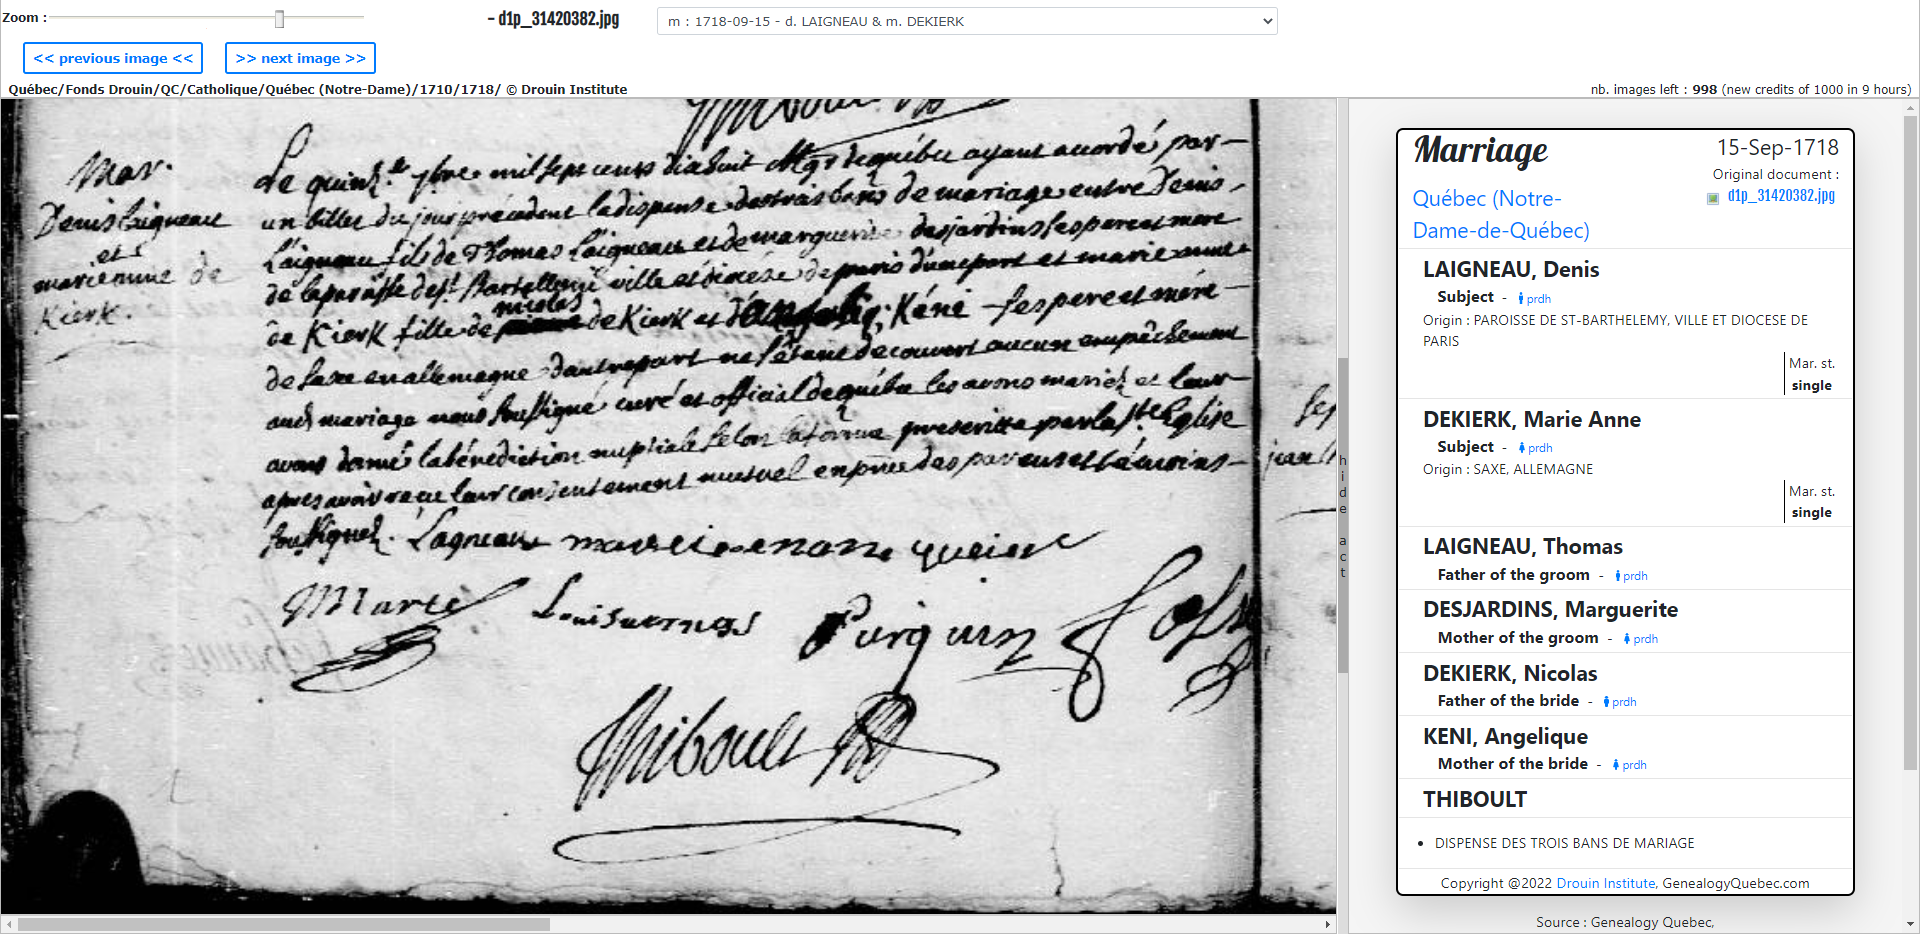 Zoom :
– d1p_31420382.jpg
m : 1718-09-15 - d. LAIGNEAU & m. DEKIERK
<< previous image <<
>> next image >>
Québec/Fonds Drouin/QC/Catholique/Québec (Notre-Dame)/1710/1718/ © Drouin Institute
nb. images left : 998 (new credits of 1000 in 9 hours)
Mar.
Denis Laigneau
et
marie anne de
Kierk.
Le quinz.e 7bre mil sept cens dixhuit Mgr de québec ayant accordé par
un billet du jour précédent la dispense des trois bans de mariage entre Denis
Laigneau fils de Thomas Laigneau et de marguerite desjardins ses pere et mere
de la paroisse de st Bartellemi ville et diocése de paris d'une part et marie anne
de Kierk fille de nicolas de Kierk et d'angelig. Kéni ses pere et mére
de saxe en allemagne d'autre part ne s'étant decouvert aucun empêchement
aud mariage nous soussigné curé et official de québec les avons mariez et leur
avons donné la bénediction nuptiale selon la forme prescritte par la ste Eglise
apres avoir recu leur consentement mutuel en pnce des parens et témoins
soussignez. Lagneau marie anane queierc
Marie
Louisuerness
Purquin
Thiboult
hide act
Marriage
15-Sep-1718
Original document :
d1p_31420382.jpg
Québec (Notre-
Dame-de-Québec)
LAIGNEAU, Denis
Subject - prdh
Origin : PAROISSE DE ST-BARTHELEMY, VILLE ET DIOCESE DE
PARIS
Mar. st.
single
DEKIERK, Marie Anne
Subject - prdh
Origin : SAXE, ALLEMAGNE
Mar. st.
single
LAIGNEAU, Thomas
Father of the groom - prdh
DESJARDINS, Marguerite
Mother of the groom - prdh
DEKIERK, Nicolas
Father of the bride - prdh
KENI, Angelique
Mother of the bride - prdh
THIBOULT
• DISPENSE DES TROIS BANS DE MARIAGE
Copyright @2022 Drouin Institute, GenealogyQuebec.com
Source : Genealogy Quebec,